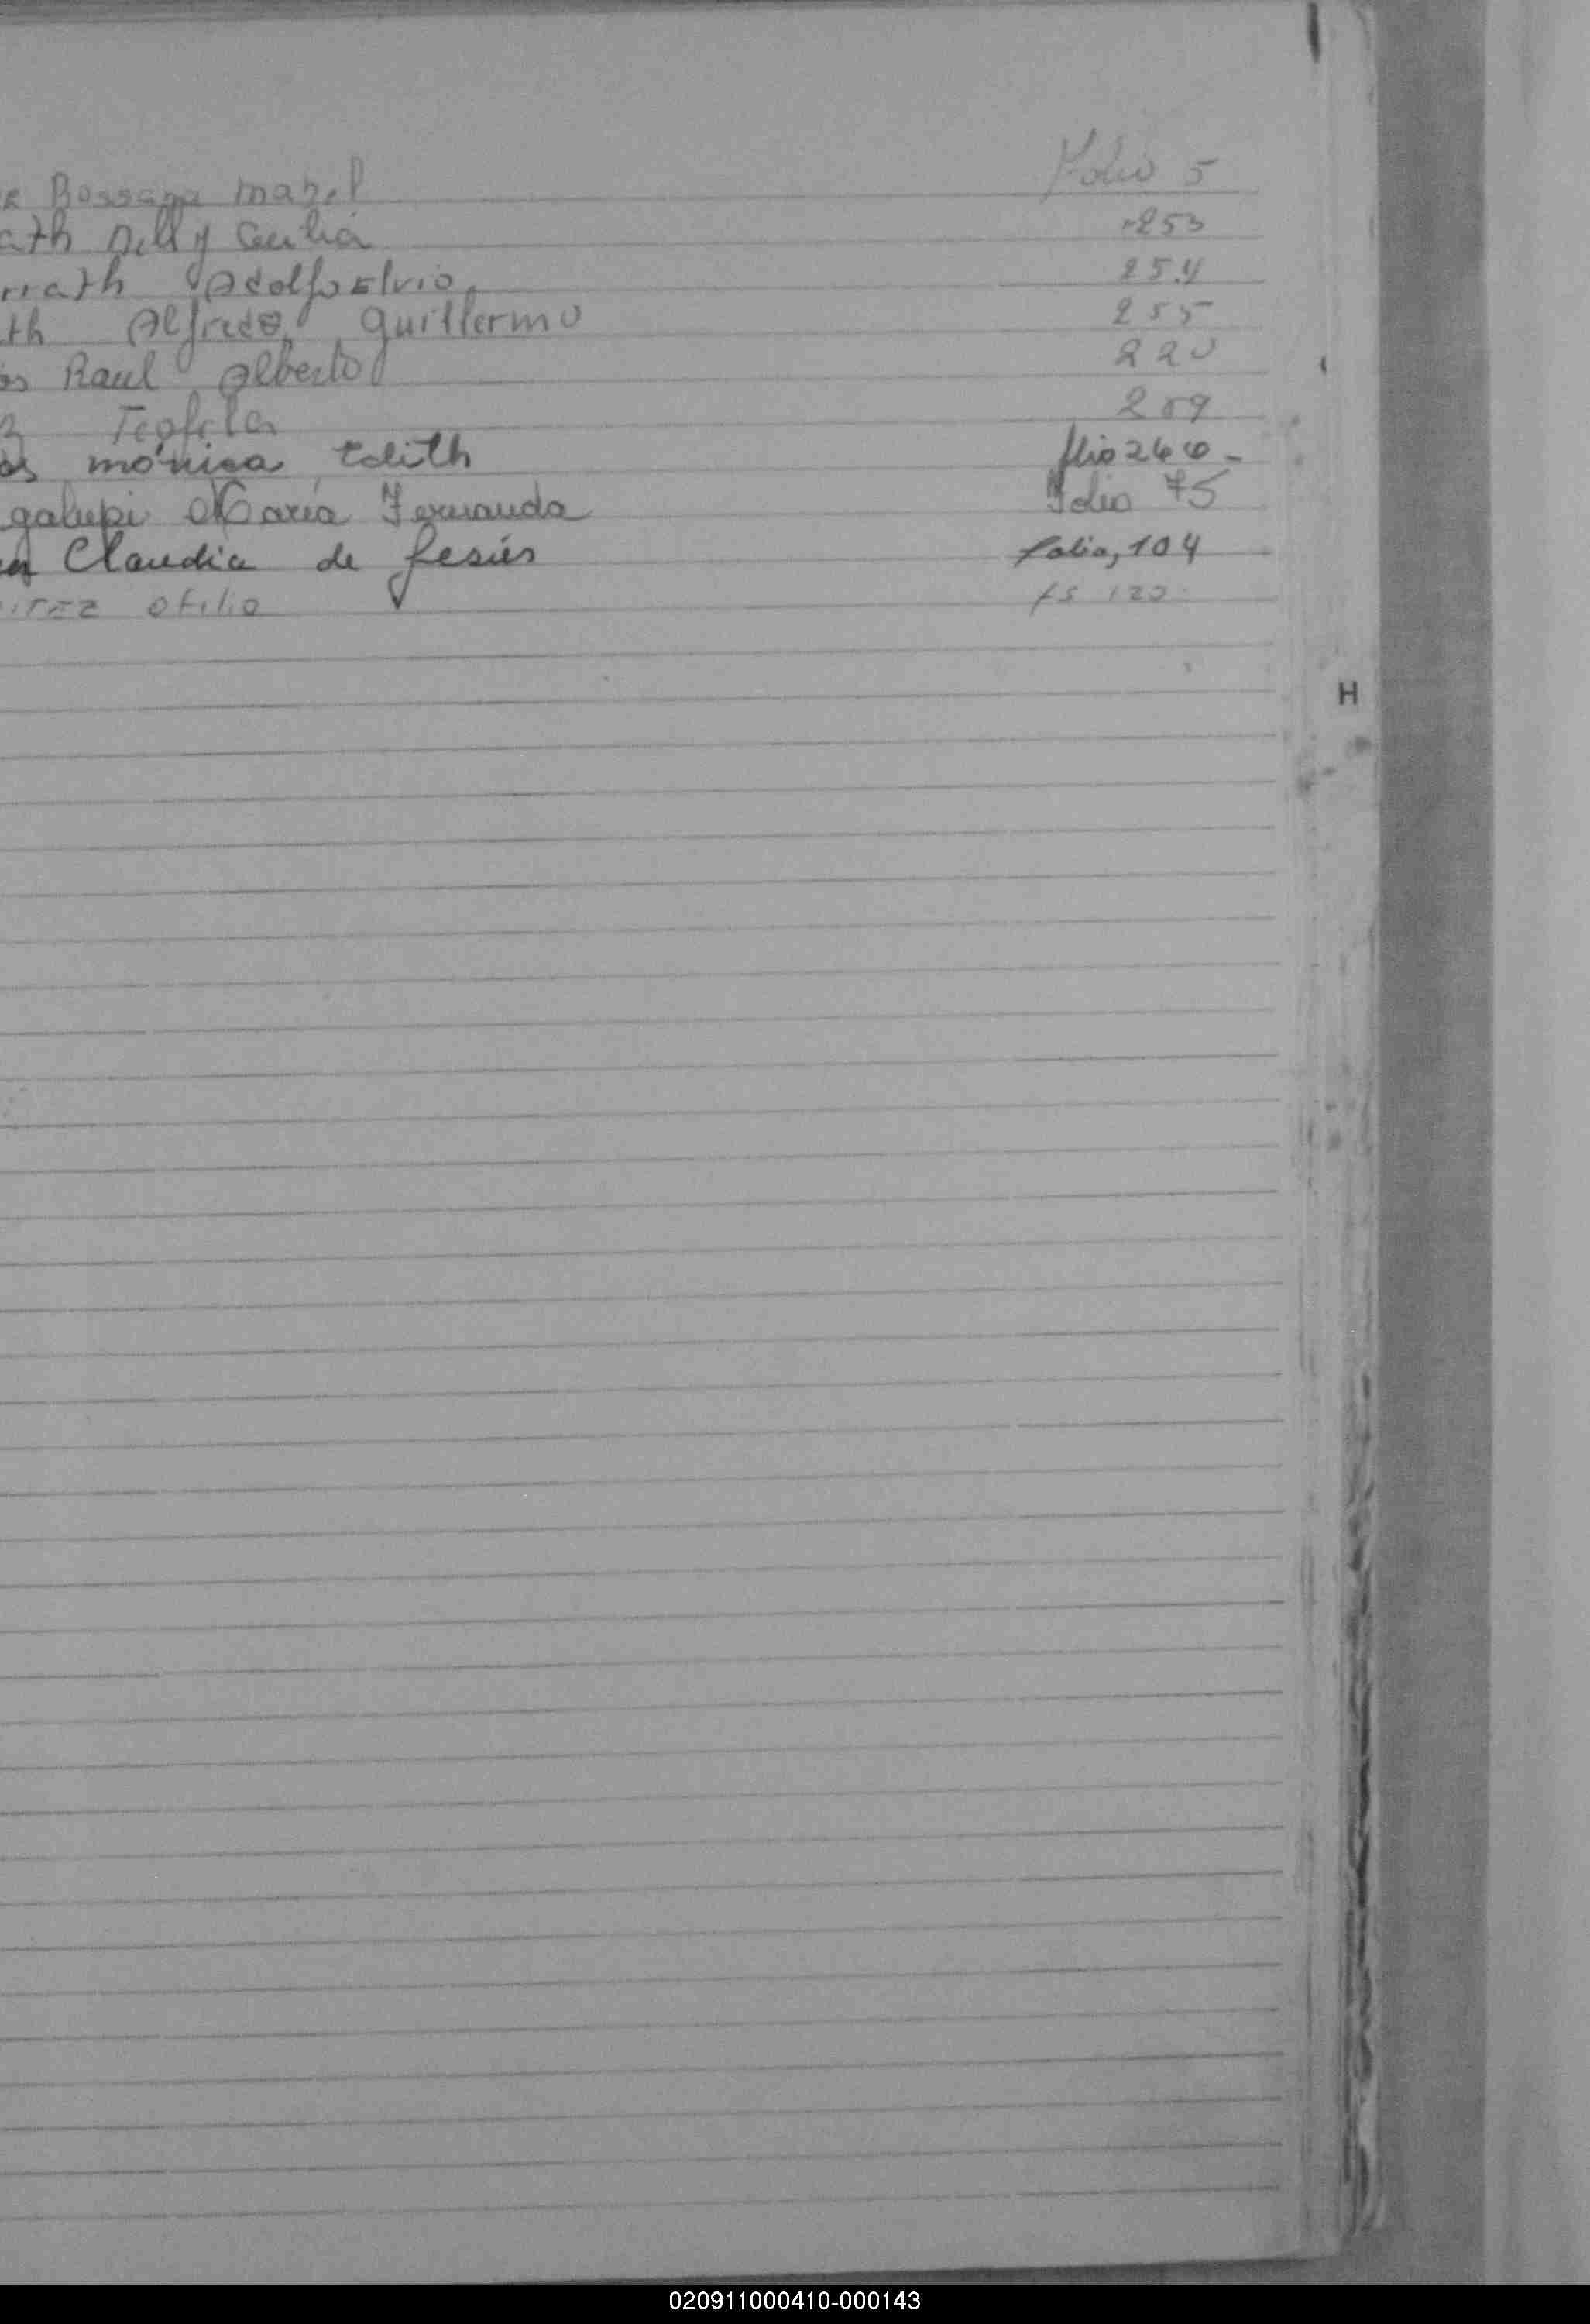 Rossana Mabel Folio 5
ath Nelly Cecilia 253
rrath Adolfo Elvio 254
th Alfredo Guillermo 255
os Raul Alberto 220
z Teofila 259
as Mónica Edith folio 240-
galupi María Fernanda Folio 75
Claudia de Jesús folio, 104
irez Otilio fs 120
H
020911000410-000143